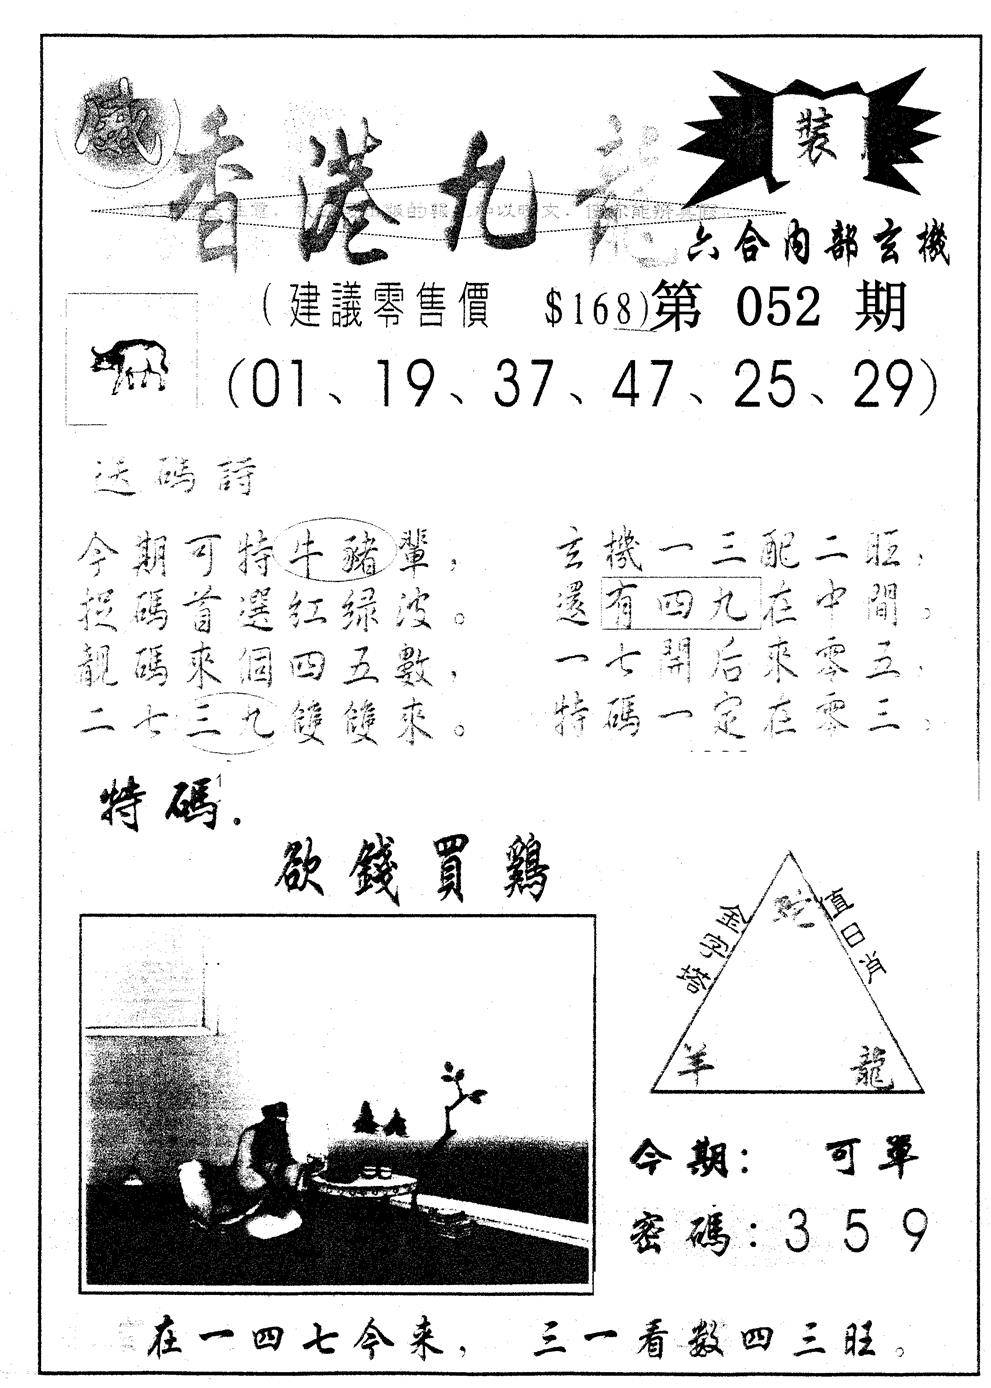 香港九龍
裝
六合内部玄機
(建議零售價 $168)第 052 期
(01、19、37、47、25、29)
送碼詩
今期可特牛豬輩，
捉碼首選紅绿波。
靚碼來個四五數，
二七三九雙雙來。
玄機一三配二旺，
還有四九在中間。
一七開后來零五，
特碼一定在零三。
特碼.
欲錢買鷄
金字塔
值日肖
蛇
羊
龍
今期: 可單
密碼:359
在一四七今来， 三一看数四三旺。